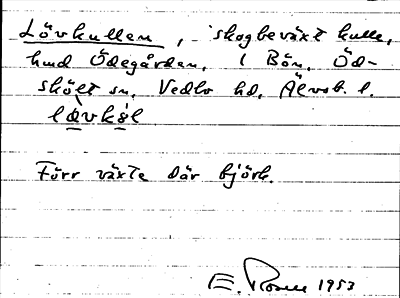 Lövkullen, skogbeväxt kulle,
hmd Ödegården, i Bön, Öd-
skölt sn, Vedbo hd, Älvsb. l.
lœvkəl
Förr växte där björk.
E. Rosen 1953